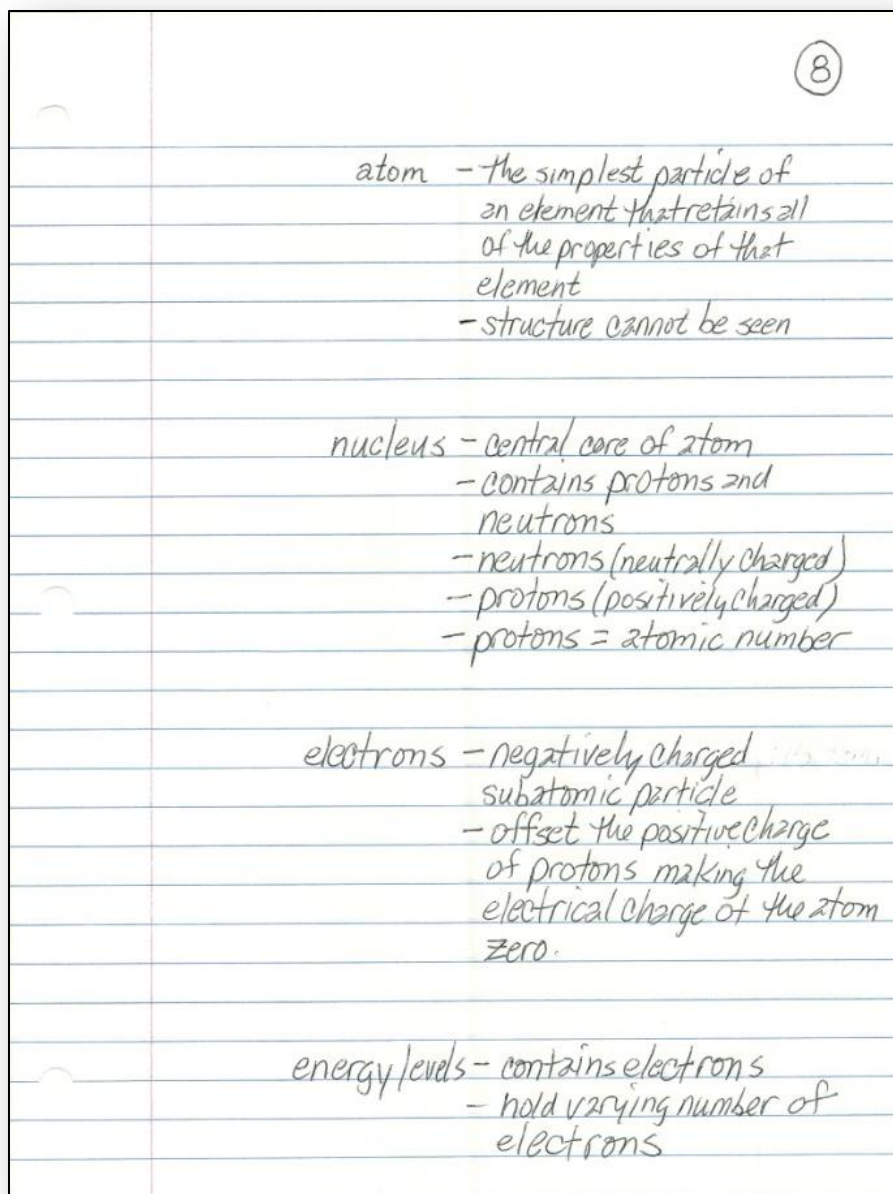 8
atom - the simplest particle of
an element that retains all
of the properties of that
element
- structure cannot be seen
nucleus - central core of atom
- contains protons and
neutrons
- neutrons (neutrally charged)
- protons (positively charged)
- protons = atomic number
electrons - negatively charged
subatomic particle
- offset the positive charge
of protons making the
electrical charge of the atom
zero.
energy levels - contains electrons
- hold varying number of
electrons